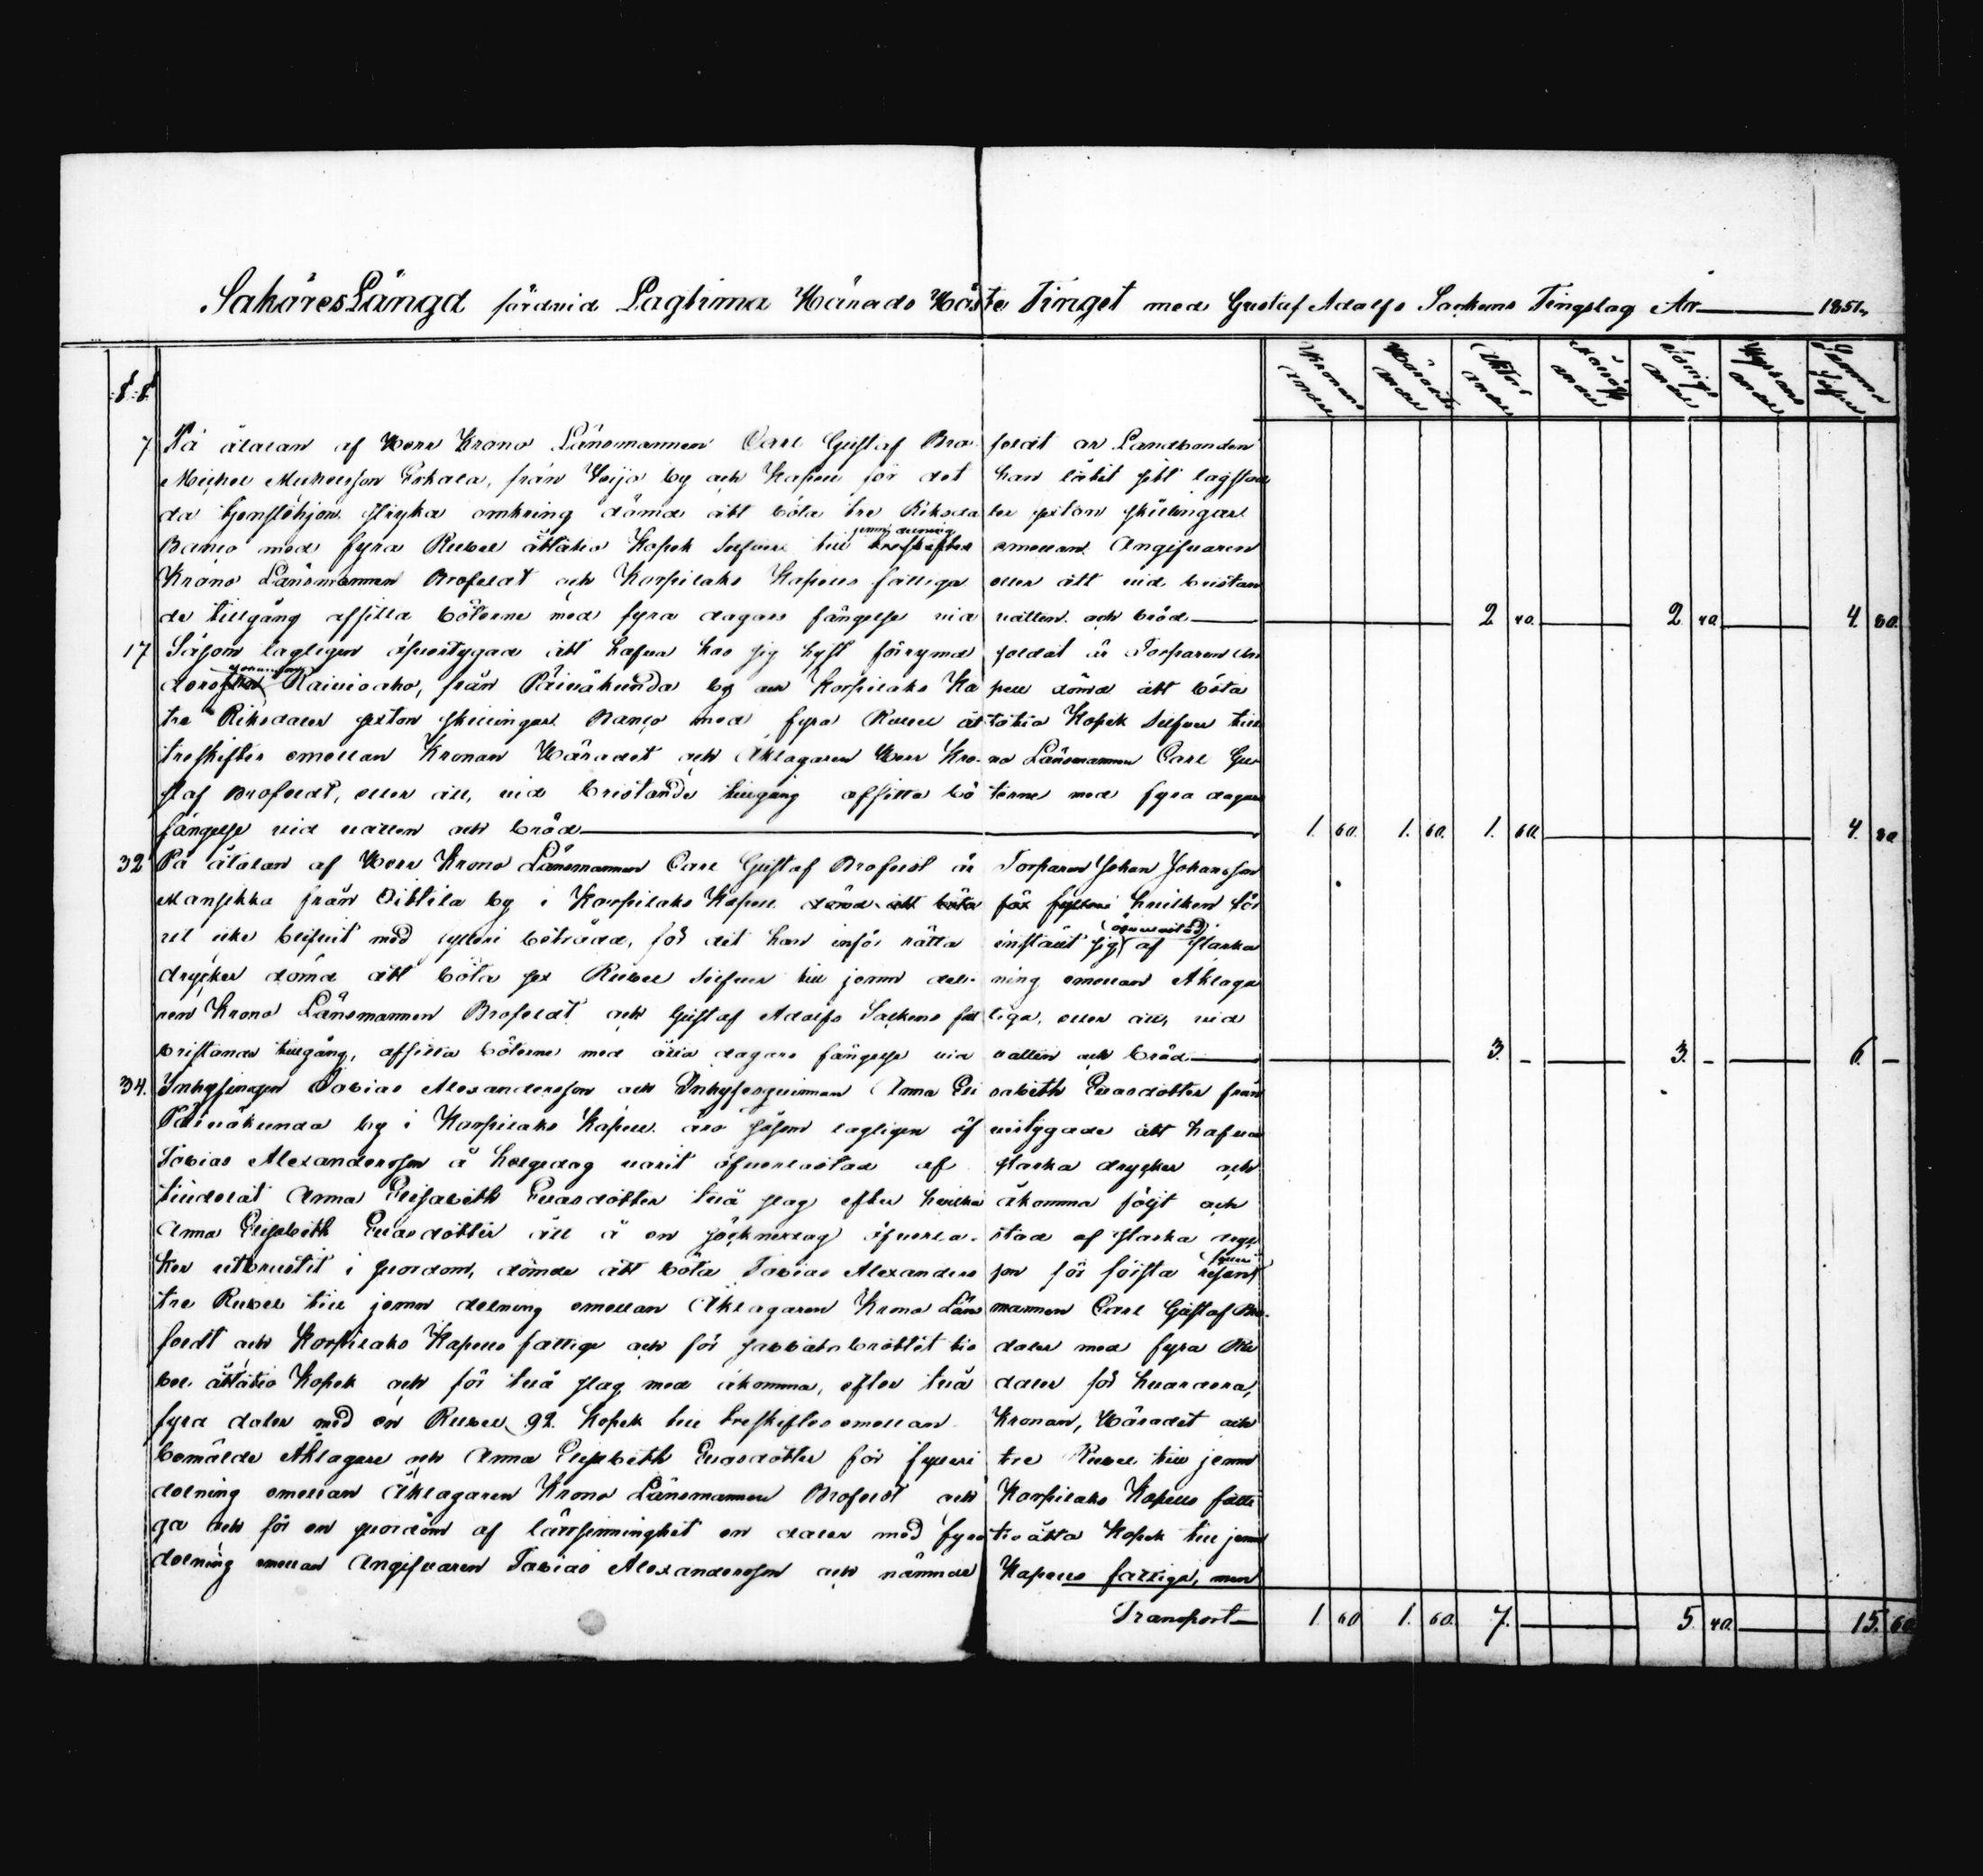 SakäresLängd förd vid Lagtima Härads Höste Tinget med Gustaf Adolfs Sockens Tingslag År 1851.
§§ Kronans andel Häradets andel Åklag. andel Fattiga andel Summa Silfver
7 På åtalan af Herr Krono Länsmannen Carl Gustaf Brofeldt är Landbonden
Michel Michelsson Erkala, från Veijo by och Kapell för det han låtit sitt lagstad
da tjenstehjon stryka omkring dömd att böta tre Riksda ler sexton skillingar
Banco med fyra Rubel åttatio Kopek Silfver till ~~treskiftes~~ jemn delning emellan Angifvaren
Krono Länsmannen Brofeldt och Korpilaks Kapells fattiga eller att vid bristan
de tillgång afsitta böterne med fyra dagars fängelse vid vatten och bröd 2 40 2 40 4. 80.
17 Såsom lagligen öfvertygad att hafva hos sig hyst förrymd soldat är Torparen An
ders Rainioaho, från Päinäkunda by och Korpilaks Ka pell dömd att böta
tre Riksdaler sexton skillingar Banco med fyra Rubel åt tatio Kopek Silfver till
treskiftes emellan Kronan Häradet och Åklagaren Herr Kro- no Länsmannen Carl Gu
staf Brofeldt, eller att, vid bristande tillgång afsitta bö terne med fyra dagars
fängelse vid vatten och bröd 1. 60. 1. 60. 1. 60. 4. 80
32 På åtalan af Herr Krono Länsmannen Carl Gustaf Brofeldt är Torparen Johan Johansson
Mansikka från Oittila by i Korpilaks Kapell ~~dömd att böta för fylleri~~ hvilken för
ut icke blifvit med fylleri beträdd, för det han inför rätta inställt sig (öfverlastad) af starka
drycker dömd att böta sex Rubel Silfver till jemn del- ning emellan Åklaga
ren Krono Länsmannen Brofeldt och Gustaf Adolfs Sockens fat tiga, eller att, vid
bristande tillgång, afsitta böterne med åtta dagars fängelse vid vatten och bröd 3. - 3. - 6. -
34. Inhysingen Tobias Alexandersson och Inhysesqvinnan Anna Eli sabeth Evasdotter från
Päinäkunda by i Korpilaks Kapell äro såsom lagligen öf vertygade att hafva
Tobias Alexandersson å helgedag varit öfverlastad af starka drycker och
tilldelat Anna Elisabeth Evasdotter två slag efter hvilka åkomma följt och
Anna Elisabeth Evasdotter att å en söcknedag öfverla- stad af starka dryc
ker utbrustit i svordom, dömde att böta Tobias Alexanders son för första fylleri resan
tre Rubel till jemn delning emellan Åklagaren Krono Läns mannen Carl Gustaf Bro-
feldt och Korpilaks Kapells fattiga och för sabbatsbrottet tio daler med fyra Ru
bel åttatio Kopek och för två slag med åkomma, efter två daler för hvardera,
fyra daler med en Rubel 92 Kopek till treskiftes emellan Kronan, Häradet och
bemälde Åklagare och Anna Elisabeth Evasdotter för fylleri tre Rubel till jemn
delning emellan Åklagaren Krono Länsmannen Brofeldt och Korpilaks Kapells fatti
ga och för en svordom af lättsinnighet en daler med fyra tio åtta Kopek till jemn
delning emellan Angifvaren Tobias Alexandersson och nämnde Kapells fattiga, men
Transport 1. 60 1. 60. 7. 5. 40. 15. 60